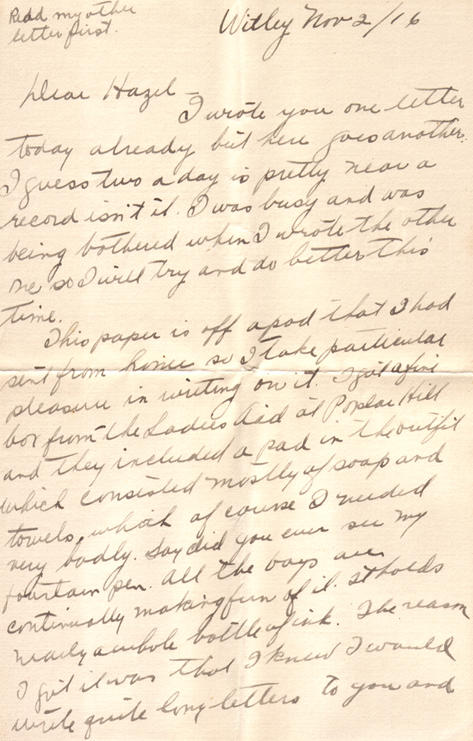 Read my other
letter first.
Witley Nov 2/16
Dear Hazel -
I wrote you one letter
today already but here goes another.
I guess two a day is pretty near a
record isn't it. I was busy and was
being bothered when I wrote the other
one so I will try and do better this
time.
This paper is off a pad that I had
sent from home so I take particular
pleasure in writing on it. I got a fine
box from the Ladies Aid at Poplar Hill
and they included a pad in the outfit
which consisted mostly of soap and
towels, which of course I needed
very badly. Say did you ever see my
fountain pen. All the boys are
continually making fun of it. It holds
nearly a whole bottle of ink. The reason
I got it was that I knew I would
write quite long letters to you and